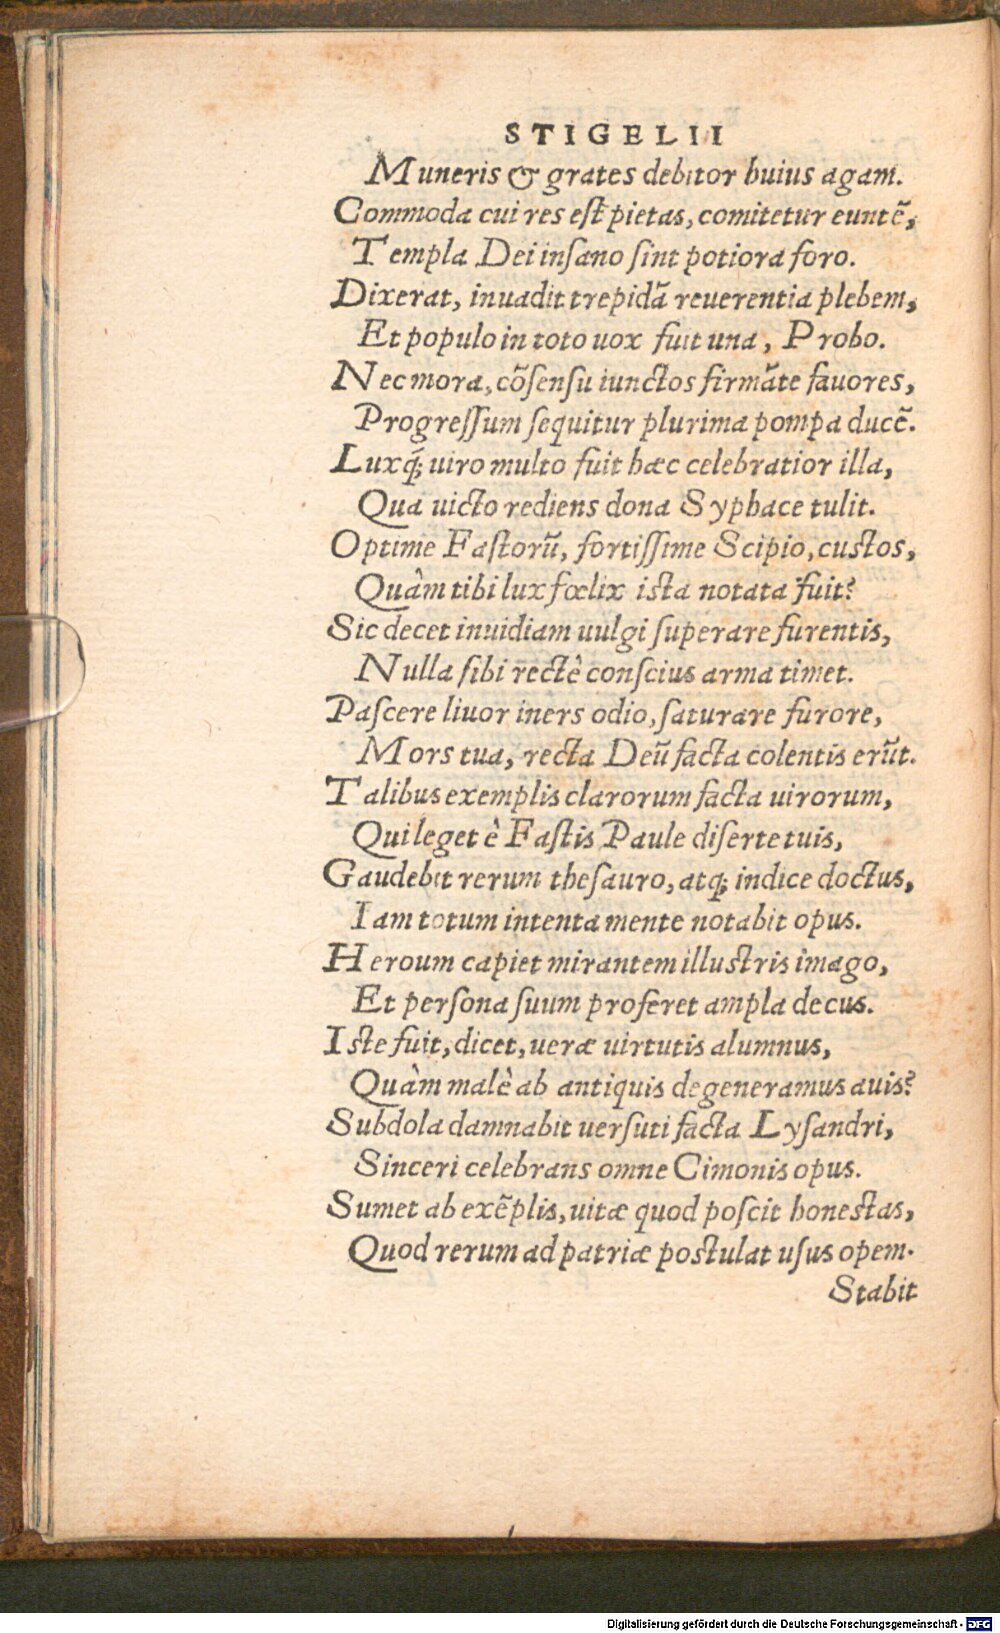 STIGELII
Muneris & grates debitor huius agam.
Commoda cui res est pietas, comitetur euntẽ,
Templa Dei insano sint potiora foro.
Dixerat, inuadit trepidã reuerentia plebem,
Et populo in toto uox fuit una, Probo.
Nec mora, cõsensu iunctos firmãte fauores,
Progressum sequitur plurima pompa ducẽ.
Luxq́; uiro multo fuit hæc celebratior illa,
Qua uicto rediens dona Syphace tulit.
Optime Fastorũ, fortissime Scipio, custos,
Quàm tibi lux fœlix ista notata fuit?
Sic decet inuidiam uulgi superare furentis,
Nulla sibi rectè conscius arma timet.
Pascere liuor iners odio, saturare furore,
Mors tua, recta Deũ facta colentis erũt.
Talibus exemplis clarorum facta uirorum,
Qui leget è Fastis Paule diserte tuis,
Gaudebit rerum thesauro, atq; indice doctus,
Iam totum intenta mente notabit opus.
Heroum capiet mirantem illustris imago,
Et persona suum proferet ampla decus.
Iste fuit, dicet, ueræ uirtutis alumnus,
Quàm malè ab antiquis degeneramus auis?
Subdola damnabit uersuti facta Lysandri,
Sinceri celebrans omne Cimonis opus.
Sumet ab exẽplis, uitæ quod poscit honestas,
Quod rerum ad patriæ postulat usus opem.
Stabit
Digitalisierung gefördert durch die Deutsche Forschungsgemeinschaft - DFG